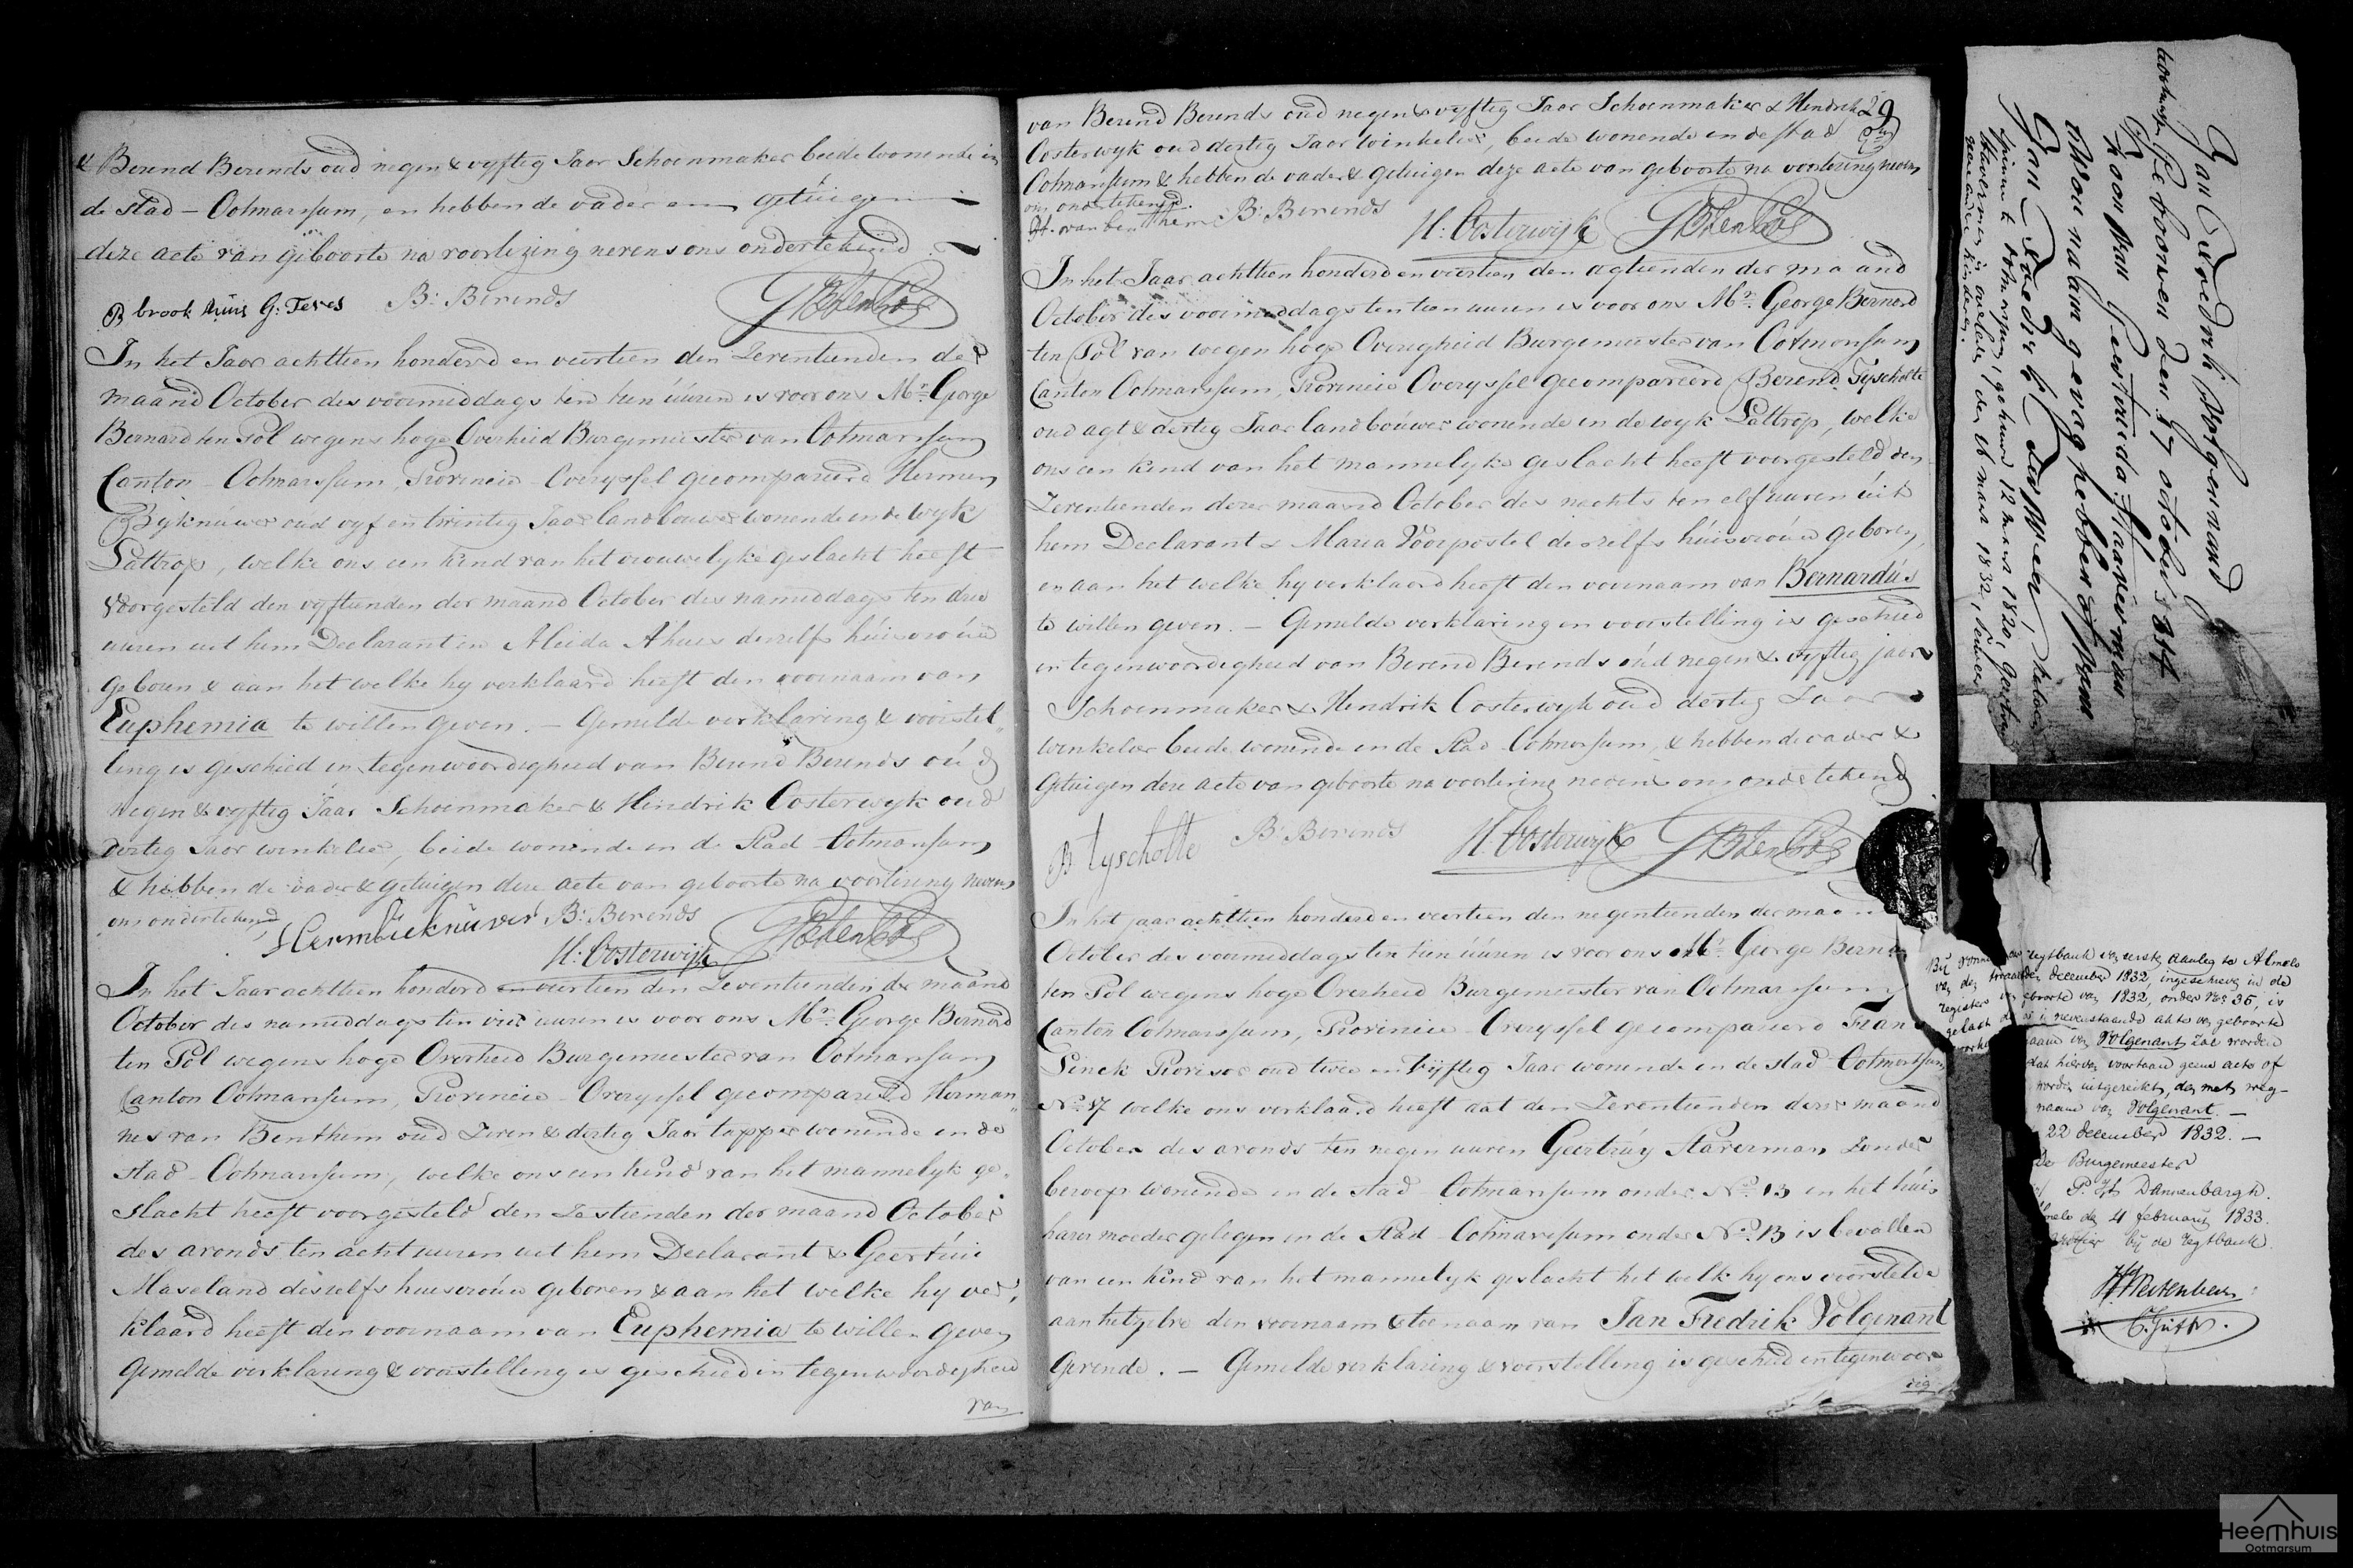 & Berend Berends oud negen & vyftig Jaar Schoenmaker beide wonende in
de stad - Ootmarssum, en hebben de vader en getuigen
deze acte van geboorte na voorlezing nevens ons ondertekend.
B brookhuis G: Teves B: Berends GBtenPol
In het Jaar achttien honderd en veertien den Zeventienden der
maand October des voormiddags tien uuren is voor ons Mr. George
Bernard ten Pol wegens hoge Overheid Burgemeester van Ootmarssum
Canton - Ootmarssum, Provincie - Overyssel gecompareerd Hermen
Byknuwer oud vyf en twintig Jaar landbouwer wonende in de wyk
Lattrop, welke ons een kind van het vrouwelyke geslacht heeft
voorgesteld den vyftienden der maand October des namiddags ten drie
uuren uit hem Declarant en Aleida Ahuis deszelfs huisvrouw
geboren & aan het welke hy verklaard heeft den voornaam van
Euphemia te willen geven. - Gemelde verklaring & voorstel„
ling is geschied in tegenwoordigheid van Berend Berends oud
Negen & vyftig Jaar Schoenmaker & Hendrik Oosterwyk oud
dertig Jaar winkelier, beide wonende in de Stad - Ootmarssum
& hebben de vader & getuigen deze acte van geboorte na voorlezing nevens
ons ondertekend
Herm Bieknuver B: Berends GBtenPol
H: Oosterwijk
In het Jaar achttien honderd en veertien den Zeventienden der maand
October des namiddags ten vier uuren is voor ons Mr. George Bernard
ten Pol wegens hoge Overheid Burgemeester van Ootmarssum
Canton Ootmarssum, Provincie - Overyssel gecompareerd Herman„
nes van Benthem oud Zeven & dertig Jaar tapper wonende in de
stad - Ootmarssum, welke ons een kind van het mannelyk ge„
slacht heeft voorgesteld den Zestienden der maand October
des avonds ten acht uuren uit hem Declarant & Geertrui
Maseland deszelfs huisvrouw geboren & aan het welke hy ver„
klaard heeft den voornaam van Euphemia te willen geven
Gemelde verklaring & voorstelling is geschied in tegenwoordigheid
van
29
van Berend Berends oud negen & vyftig Jaar Schoenmaker & Hendrik
Oosterwyk oud dertig Jaar winkelier, beide wonende in de stad
Ootmarssum & hebben de vader & getuigen deze acte van geboorte na voorlezing nevens
ons ondertekend.
H. van benthem B: Berends H: Oosterwijk GBtenPol
In het Jaar achttien honderd en veertien den agtienden der maand
October des voormiddags ten tien uuren is voor ons Mr. George Bernard
ten Pol van wegen hoge Overigheid Burgemeester van Ootmarssum
Canton Ootmarssum, Provincie Overyssel gecompareerd Berend Tyscholte
oud agt & dertig Jaar landbouwer wonende in de wyk Lattrop, welke
ons een kind van het mannelyke geslacht heeft voorgesteld den
Zeventienden dezer maand October des nachts ten elf uuren uit
hem Declarant & Maria Voorpostel deszelfs huisvrouw geboren,
en aan het welke hy verklaard heeft den voornaam van Bernardus
te willen geven. - Gemelde verklaring en voorstelling is geschied
in tegenwoordigheid van Berend Berends oud negen & vyftig jaar
Schoenmaker & Hendrik Oosterwyk oud dertig Jaar
winkelier beide wonende in de Stad Ootmarssum, & hebben de vader &
getuigen deze acte van geboorte na voorlezing nevens ons ondertekend
B tyscholte B: Berends H. Oosterwijk GBtenPol
In het jaar achttien honderd en veertien den negentienden der maand
October des voormiddags ten tien uuren is voor ons Mr. George Bernard
ten Pol wegens hoge Overheid Burgemeester van Ootmarssum
Canton Ootmarssum, Provincie - Overyssel gecompareerd Frans
Linck Provisor oud twee en vyftig Jaar wonende in de stad - Ootmarssum
No. 17 welke ons verklaard heeft dat den Zeventienden dezer maand
October des avonds ten negen uuren Geertruy Staverman Zonder
beroep wonende in de stad - Ootmarssum onder No. 13 in het huis
harer moeder gelegen in de Stad - Ootmarssum onder No. 13 is bevallen
van een kind van het mannelyk geslacht het welk hy ons voorstelde
aan hetzelve den voornaam & toenaam van Jan Fredrik Volgenant
Gevende. - Gemelde verklaring & voorstelling is geschied in tegenwoor„
dig
Jan Fredrik Volgenand
geboren den 17 october 1814
Zoon van Geertruida Staverman
Jan Fredrik
12 maart 1820, Geertruid
Staverman overleden den 16 maart 1832,
kinderen.
Bij vonnis regtbank van eersten aanleg te Almelo
van den december 1832, ingeschreven in de
registers van geboorte van 1832, onder No. 36, is
gelast nevenstaande akte van geboorte
naam van Volgenant zal worden
dat hiervan voortaan geene acte of
worden uitgereikt, dan met weg-
naam van Volgenant. -
22 december 1832. -
De Burgemeester
Dannenbargh.
Almelo den 4 februarij 1833.
Griffier bij de regtbank.
Heemhuis
Ootmarsum